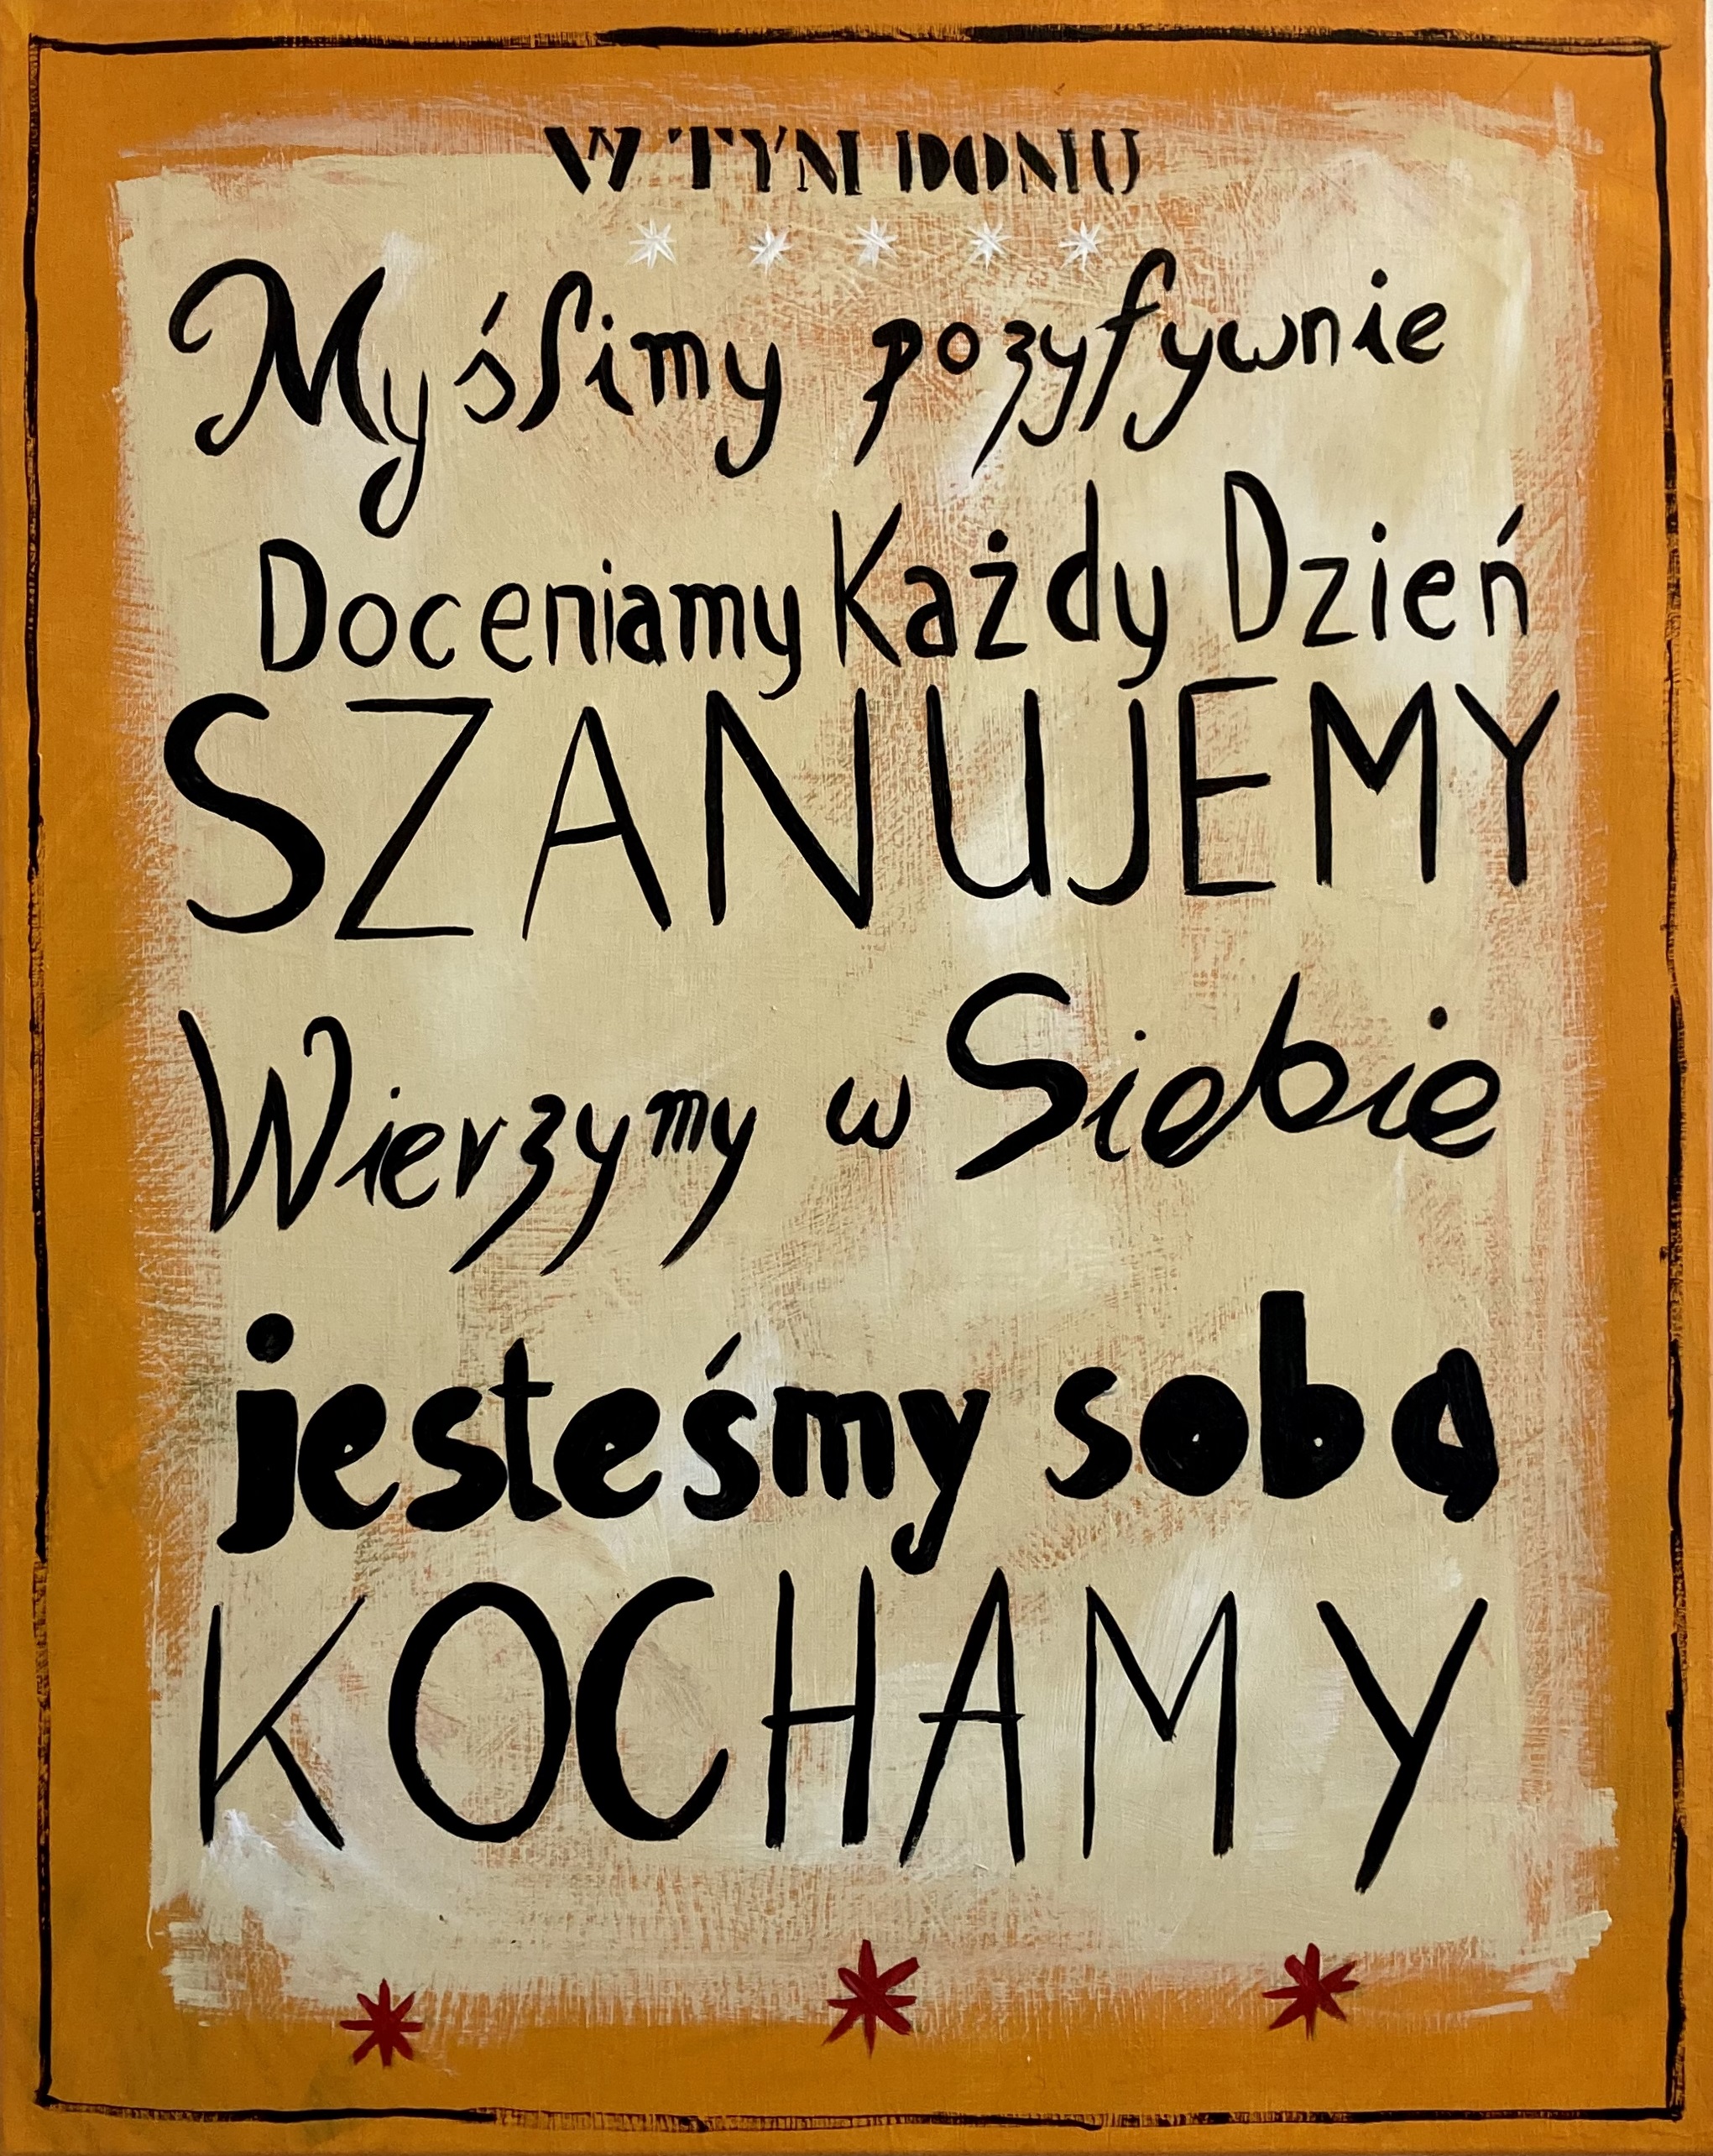 W TYM DOMU
Myślimy pozytywnie
Doceniamy Każdy Dzień
SZANUJEMY
Wierzymy w Siebie
jesteśmy sobą
KOCHAMY